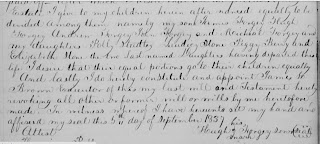 I give to my children herein after named equally to be
divided among them namely my sons James Forgey Hugh
Forgey Andrew Forgey John Forgey and Reuben Forgey and
my daughters Polly Lindsey Stone Peggy and
Elizabeth Stone the last named daughters having departed this
life I desire that their equal portions go to their children equally
And lastly I do hereby constitute and appoint James
executor of this my last will and Testament hereby
revoking all other or former will or wills by me heretofore
made In witness whereof I have hereunto set my hand and
affixed my seal this 5th day of September 1837
his
Hugh Forgey
mark
Attest